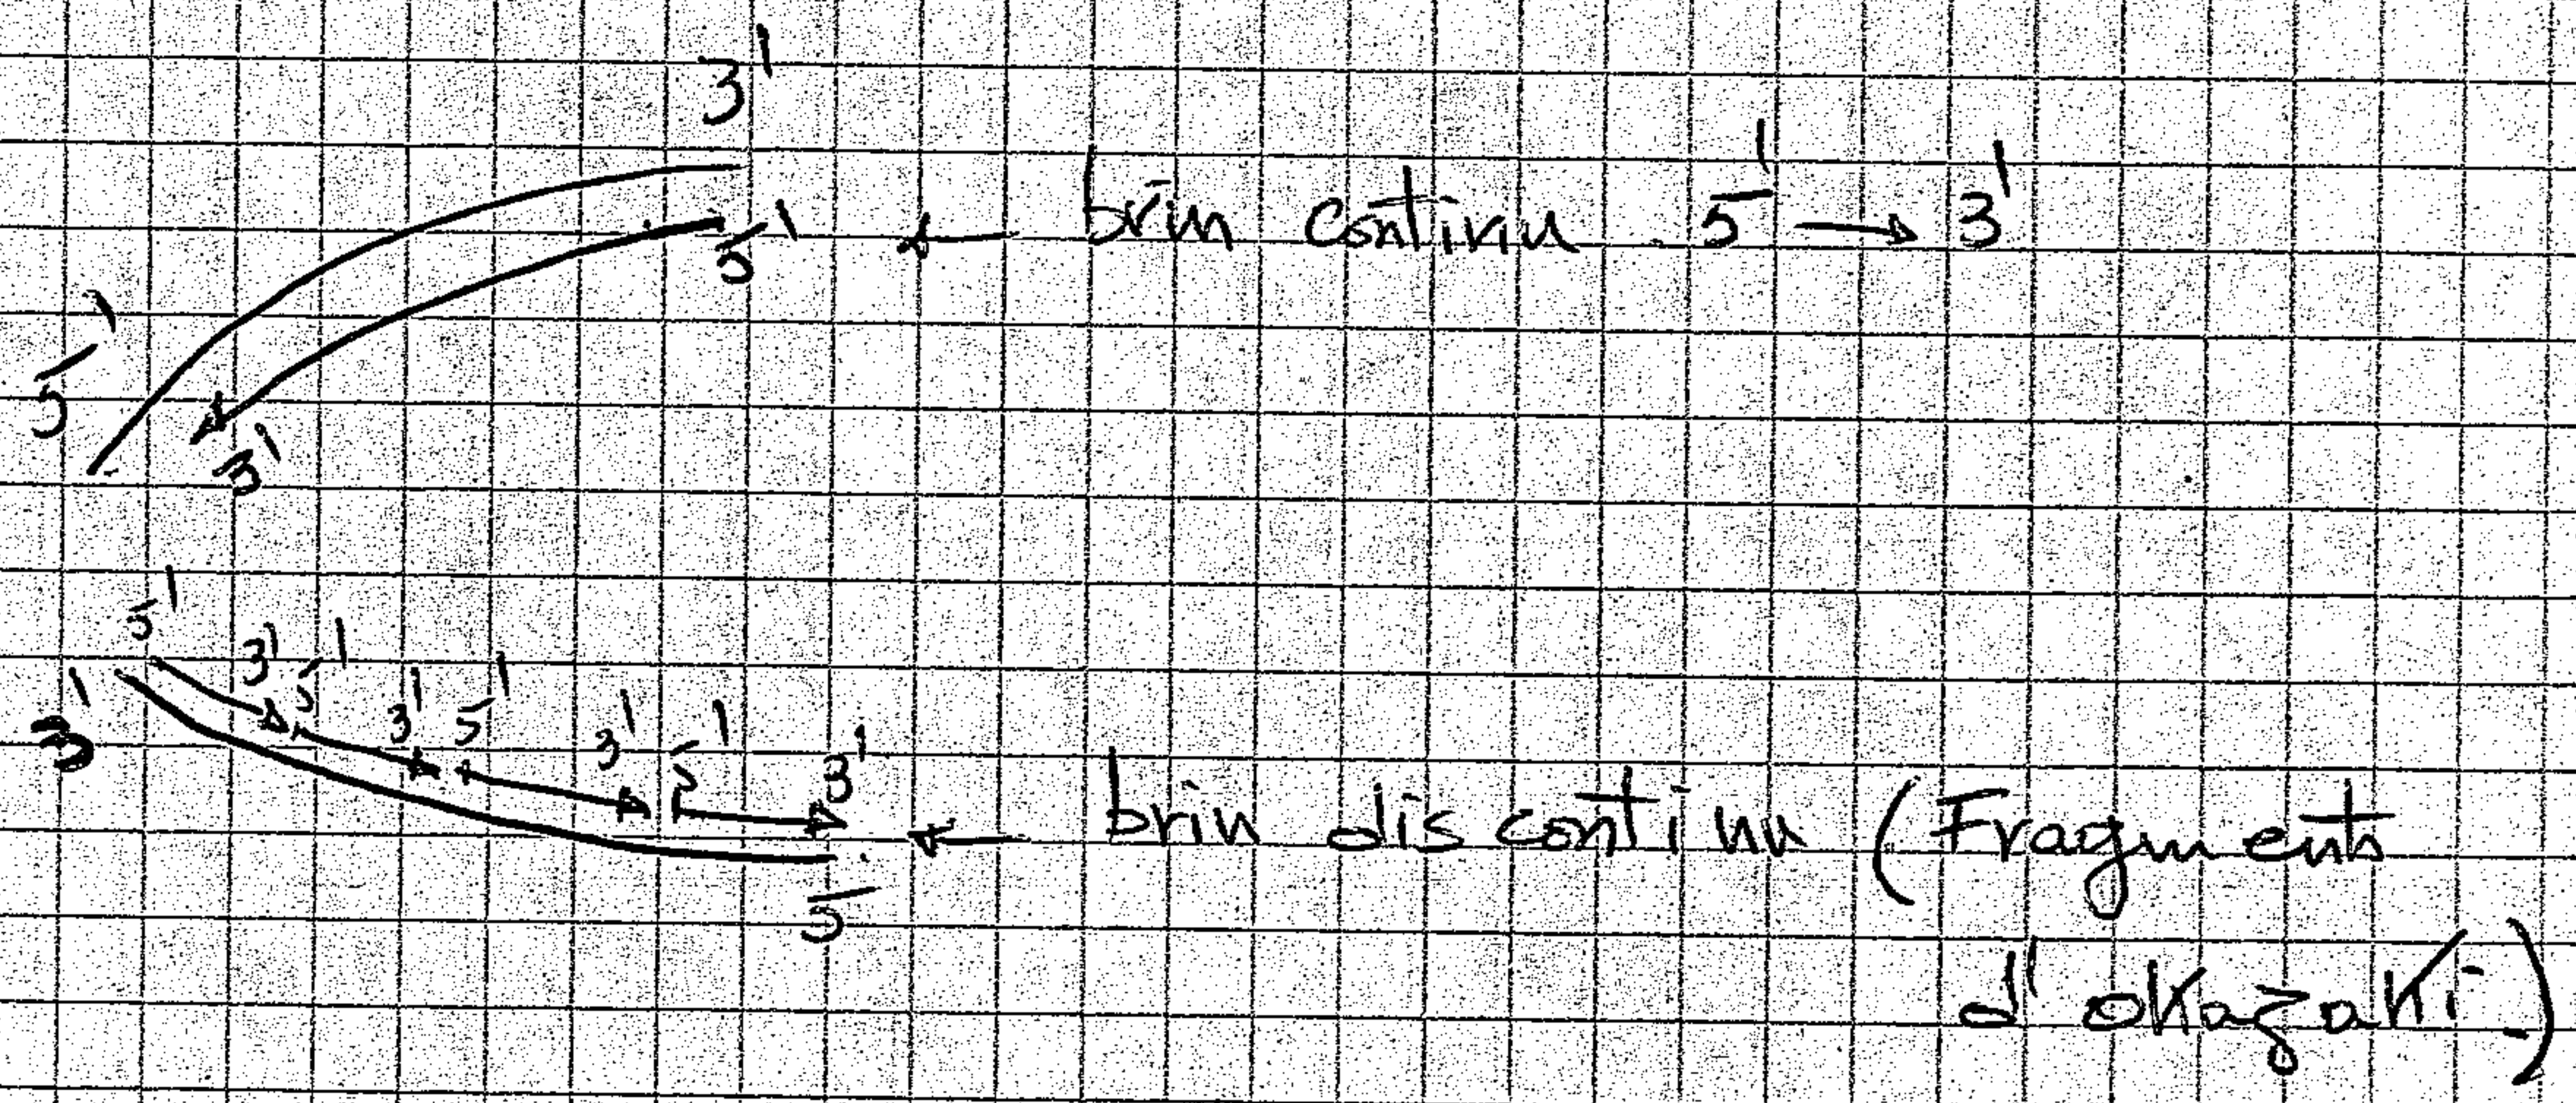 3'
5' ← brin continu 5' → 3'
5'
3'
5'
3' 5'
3'
3' 5'
3' 5'
3'
← brin discontinu (Fragments
5
d'okazaki)